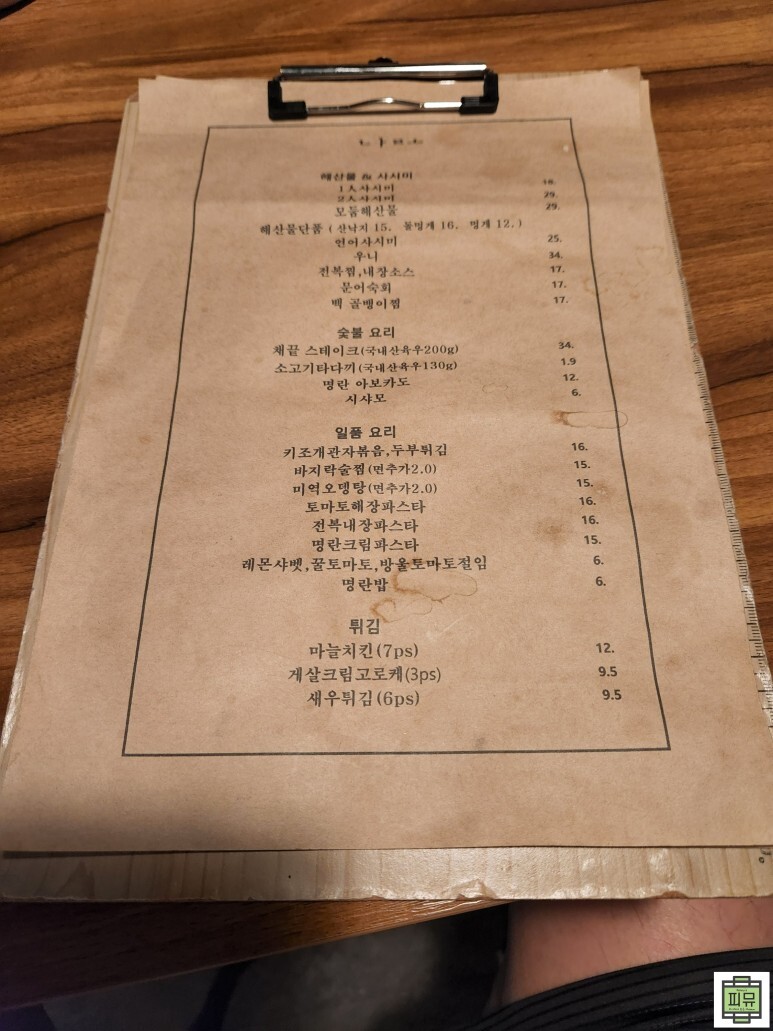 해산물 & 사시미
1人사시미 18.
2人사시미 29.
모둠해산물 29.
해산물단품 ( 산낙지 15. 돌멍게 16. 멍게 12. )
연어사시미 25.
우니 34.
전복찜,내장소스 17.
문어숙회 17.
백 골뱅이찜 17.
숯불 요리
채끝 스테이크(국내산육우200g) 34.
소고기타다끼(국내산육우130g) 1.9
명란 아보카도 12.
시샤모 6.
일품 요리
키조개관자볶음,두부튀김 16.
바지락술찜(면추가2.0) 15.
미역오뎅탕(면추가2.0) 15.
토마토해장파스타 16.
전복내장파스타 16.
명란크림파스타 15.
레몬샤벳,꿀토마토,방울토마토절임 6.
명란밥 6.
튀김
마늘치킨(7ps) 12.
게살크림고로케(3ps) 9.5
새우튀김(6ps) 9.5
피뮤